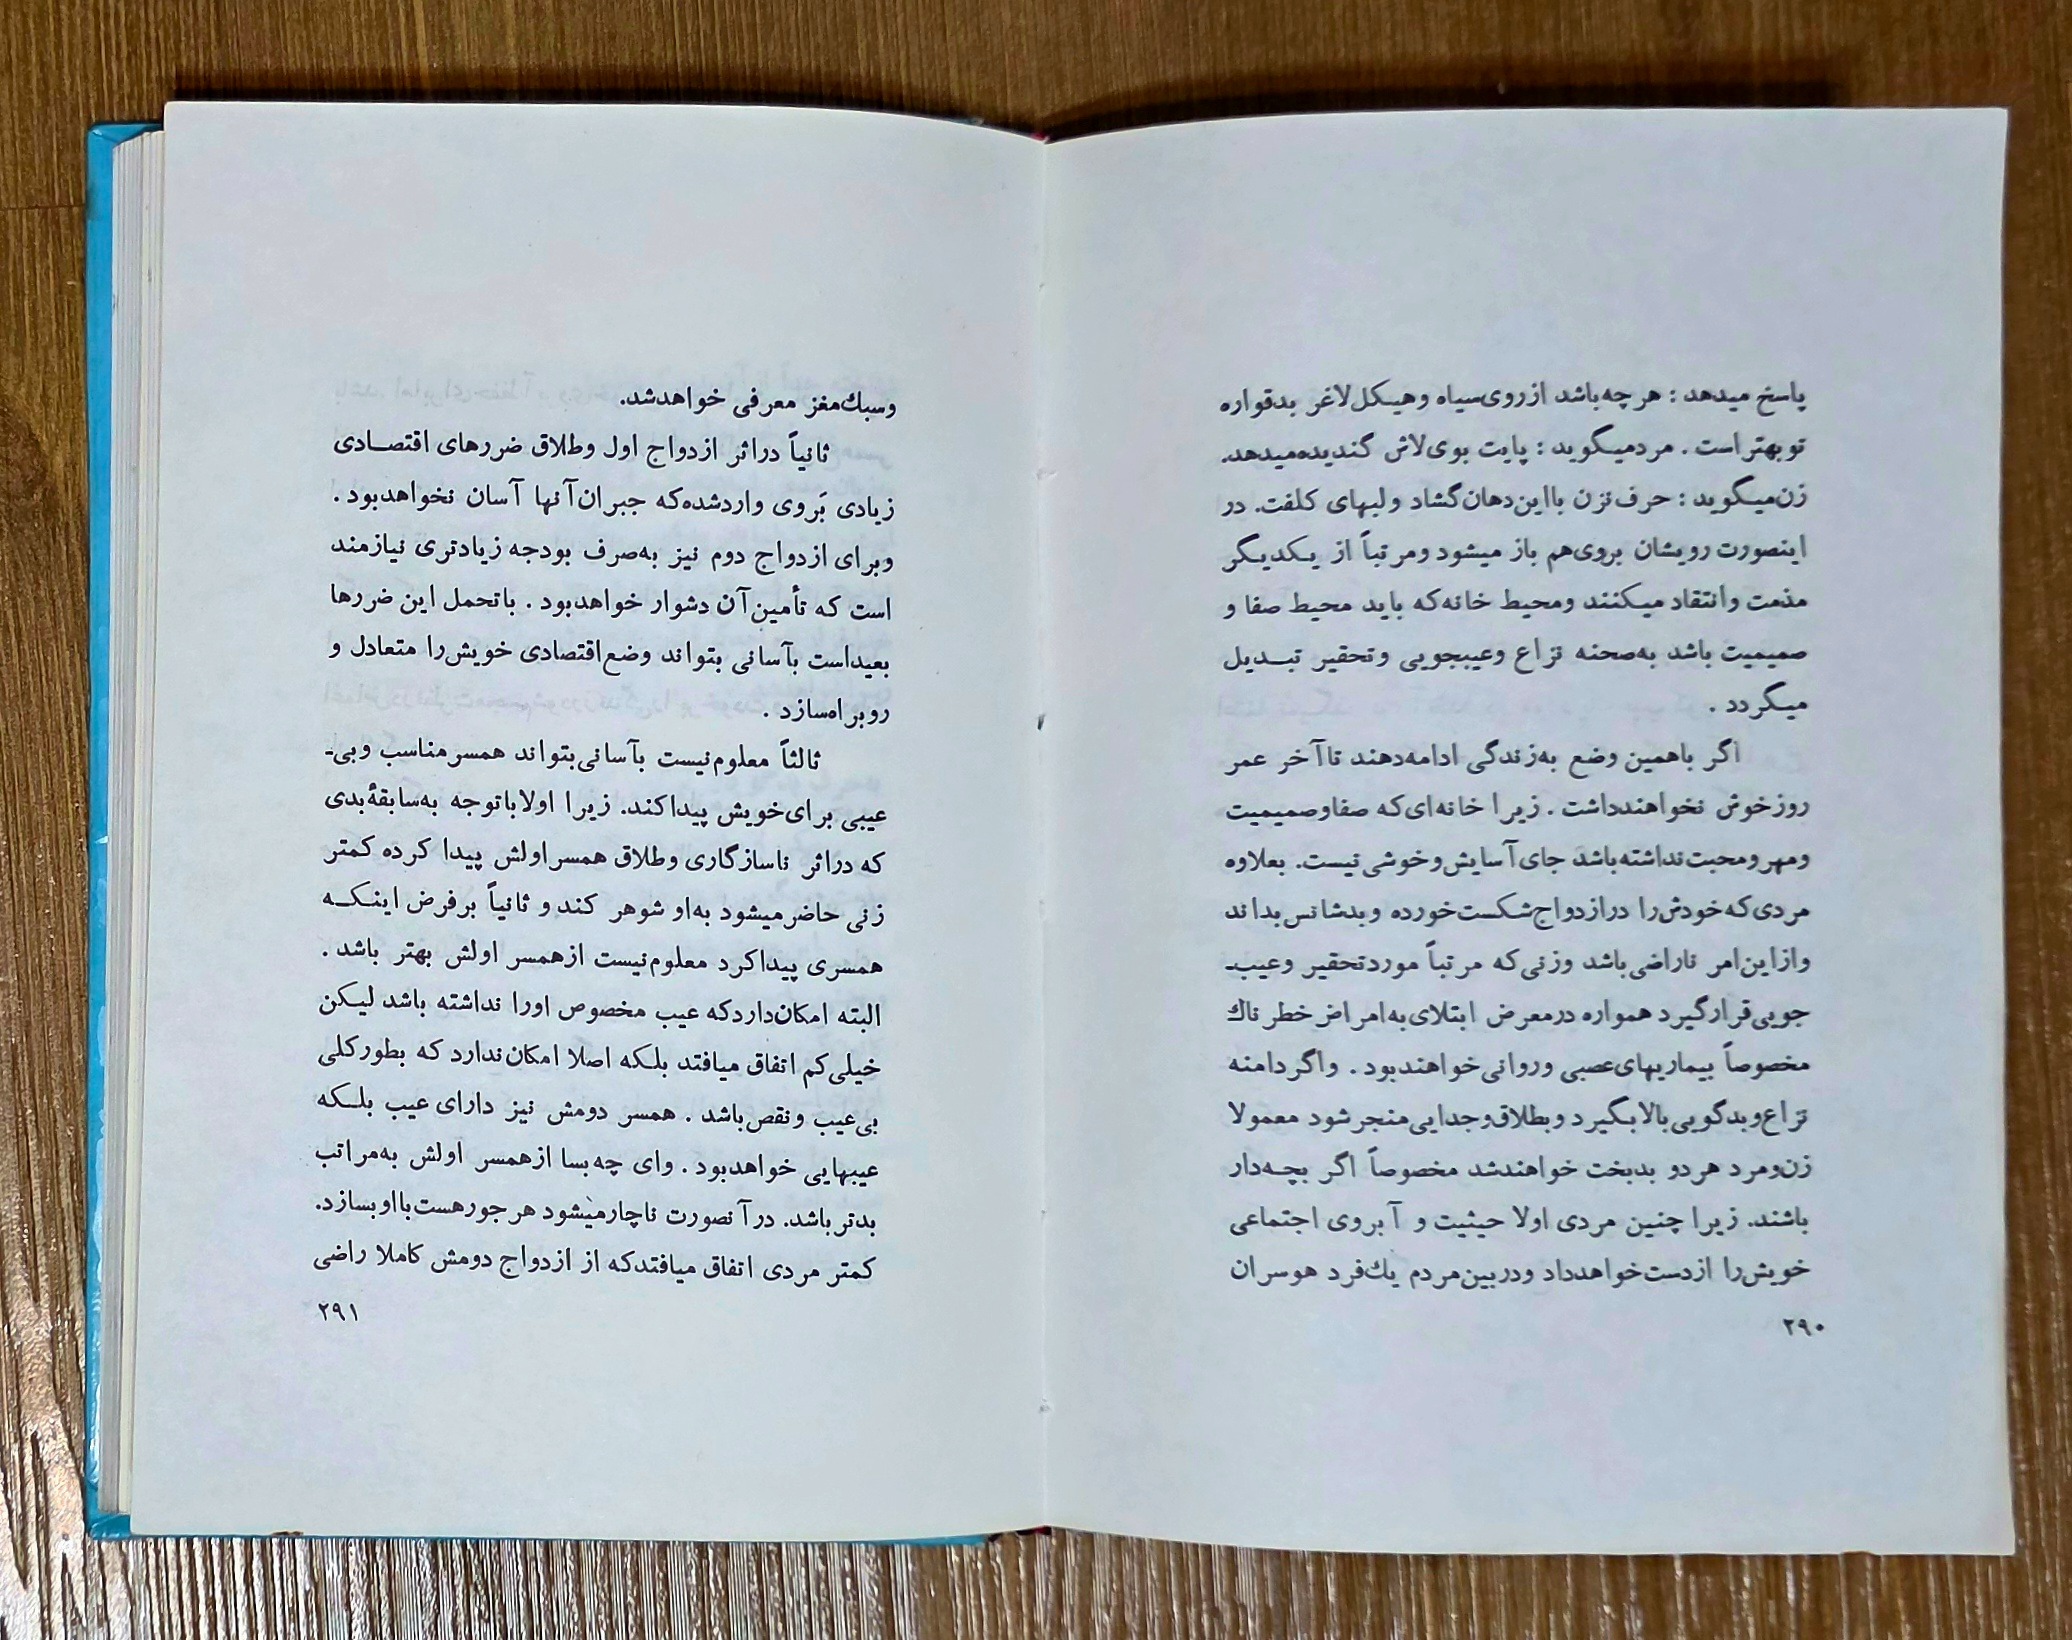 پاسخ میدهد : هرچه‌باشد ازروی‌سیاه وهیکل‌لاغر بدقواره
توبهتراست . مردمیگوید : پایت بوی‌لاش گندیده‌میدهد.
زن‌میگوید : حرف‌نزن بااین‌دهان‌گشاد ولبهای کلفت. در
اینصورت رویشان بروی‌هم باز میشود ومرتباً از یکدیگر
مذمت وانتقاد میکنند ومحیط خانه‌که باید محیط صفا و
صمیمیت باشد به‌صحنه نزاع وعیبجویی وتحقیر تبدیل
میگردد .
اگر باهمین وضع به‌زندگی ادامه‌دهند تاآخر عمر
روزخوش نخواهندداشت . زیرا خانه‌ای‌که صفاوصمیمیت
ومهرومحبت‌نداشته‌باشد جای‌آسایش‌وخوشی نیست. بعلاوه
مردی‌که‌خودش‌را درازدواج‌شکست‌خورده وبدشانس‌بداند
وازاین‌امر ناراضی‌باشد وزنی‌که مرتباً موردتحقیر وعیب‌ـ
جویی‌قرارگیرد همواره درمعرض ابتلای‌به‌امراض خطرناك
مخصوصاً بیماریهای‌عصبی وروانی‌خواهندبود . واگردامنه
نزاع‌وبدگویی‌بالابگیرد وبطلاق‌وجدایی‌منجرشود معمولا
زن‌ومرد هردو بدبخت خواهندشد مخصوصاً اگر بچه‌دار
باشند. زیرا چنین مردی اولا حیثیت و آبروی اجتماعی
خویش‌را ازدست‌خواهدداد ودربین‌مردم یك‌فرد هوسران
۲۹۰
وسبك‌مغز معرفی خواهدشد.
ثانیاً دراثر ازدواج اول وطلاق ضررهای اقتصادی
زیادی بَروی واردشده‌که جبران‌آنها آسان نخواهدبود .
وبرای ازدواج دوم نیز به‌صرف بودجه زیادتری نیازمند
است که تأمین‌آن دشوار خواهدبود . باتحمل این ضررها
بعیداست بآسانی بتواند وضع‌اقتصادی خویش‌را متعادل و
روبراه‌سازد .
ثالثاً معلوم‌نیست بآسانی‌بتواند همسرمناسب وبی‌ـ
عیبی برای‌خویش پیداکند. زیرا اولاباتوجه به‌سابقهٔ‌بدی
که دراثر ناسازگاری وطلاق همسراولش پیدا کرده کمتر
زنی حاضرمیشود به‌او شوهر کند و ثانیاً برفرض اینکه
همسری پیداکرد معلوم‌نیست ازهمسر اولش بهتر باشد .
البته امکان‌داردکه عیب مخصوص اورا نداشته باشد لیکن
خیلی‌کم اتفاق میافتد بلکه اصلا امکان‌ندارد که بطورکلی
بی‌عیب ونقص‌باشد . همسر دومش نیز دارای عیب بلکه
عیبهایی خواهدبود . وای چه‌بسا ازهمسر اولش به‌مراتب
بدترباشد. درآنصورت ناچارمیشود هرجورهست‌بااوبسازد.
کمتر مردی اتفاق میافتدکه از ازدواج دومش کاملا راضی
۲۹۱